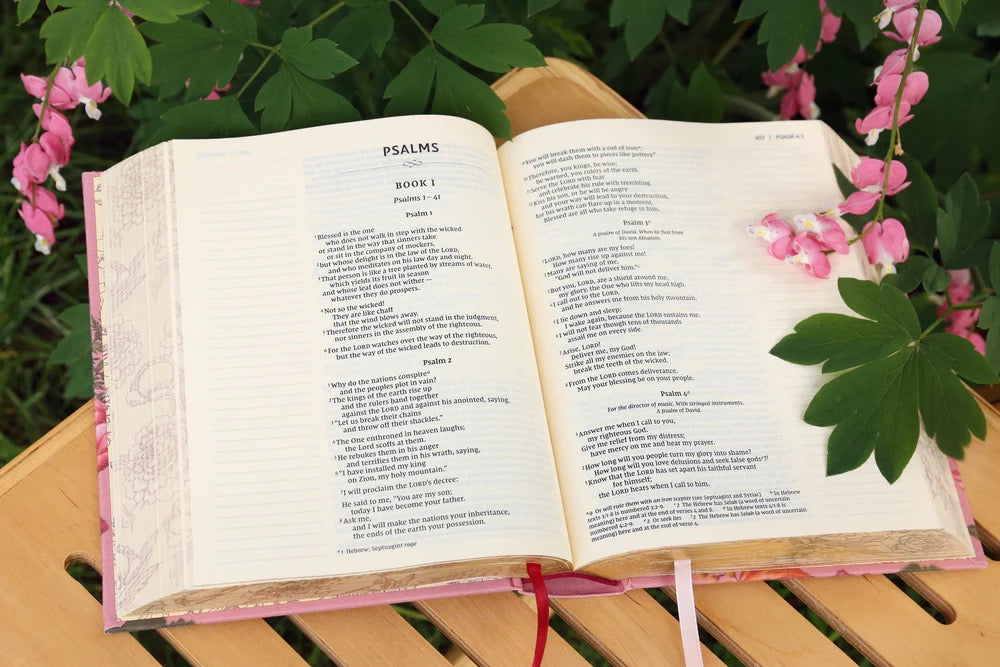 PSALMS
BOOK I
Psalms 1–41
Psalm 1
1Blessed is the one
who does not walk in step with the wicked
or stand in the way that sinners take
or sit in the company of mockers,
2but whose delight is in the law of the LORD,
and who meditates on his law day and night.
3That person is like a tree planted by streams of water,
which yields its fruit in season
and whose leaf does not wither—
whatever they do prospers.
4Not so the wicked!
They are like chaff
that the wind blows away.
5Therefore the wicked will not stand in the judgment,
nor sinners in the assembly of the righteous.
6For the LORD watches over the way of the righteous,
but the way of the wicked leads to destruction.
Psalm 2
1Why do the nations conspire
and the peoples plot in vain?
2The kings of the earth rise up
and the rulers band together
against the LORD and against his anointed, saying,
3"Let us break their chains
and throw off their shackles."
4The One enthroned in heaven laughs;
the Lord scoffs at them.
5He rebukes them in his anger
and terrifies them in his wrath, saying,
6"I have installed my king
on Zion, my holy mountain."
7I will proclaim the LORD's decree:
He said to me, "You are my son;
today I have become your father.
8Ask me,
and I will make the nations your inheritance,
the ends of the earth your possession.
1 Hebrew; Septuagint rage
PSALM 4:3
9You will break them with a rod of iron;
you will dash them to pieces like pottery."
10Therefore, you kings, be wise;
be warned, you rulers of the earth.
11Serve the LORD with fear
and celebrate his rule with trembling.
12Kiss his son, or he will be angry
and your way will lead to your destruction,
for his wrath can flare up in a moment.
Blessed are all who take refuge in him.
Psalm 3
A psalm of David. When he fled from
his son Absalom.
1LORD, how many are my foes!
How many rise up against me!
2Many are saying of me,
"God will not deliver him."
3But you, LORD, are a shield around me,
my glory, the One who lifts my head high.
4I call out to the LORD,
and he answers me from his holy mountain.
5I lie down and sleep;
I wake again, because the LORD sustains me.
6I will not fear though tens of thousands
assail me on every side.
7Arise, LORD!
Deliver me, my God!
Strike all my enemies on the jaw;
break the teeth of the wicked.
8From the LORD comes deliverance.
May your blessing be on your people.
Psalm 4
For the director of music. With stringed instruments.
A psalm of David.
1Answer me when I call to you,
my righteous God.
Give me relief from my distress;
have mercy on me and hear my prayer.
2How long will you people turn my glory into shame?
How long will you love delusions and seek false gods?
3Know that the LORD has set apart his faithful servant
for himself;
the LORD hears when I call to him.
9 Or will rule them with an iron scepter (see Septuagint and Syriac) In Hebrew
texts 3:1-8 is numbered 3:2-9. 2 The Hebrew has Selah (a word of uncertain
meaning) here and at the end of verses 4 and 8. In Hebrew texts 4:1-8 is
numbered 4:2-9. 2 Or seek lies 2 The Hebrew has Selah (a word of uncertain
meaning) here and at the end of verse 4.